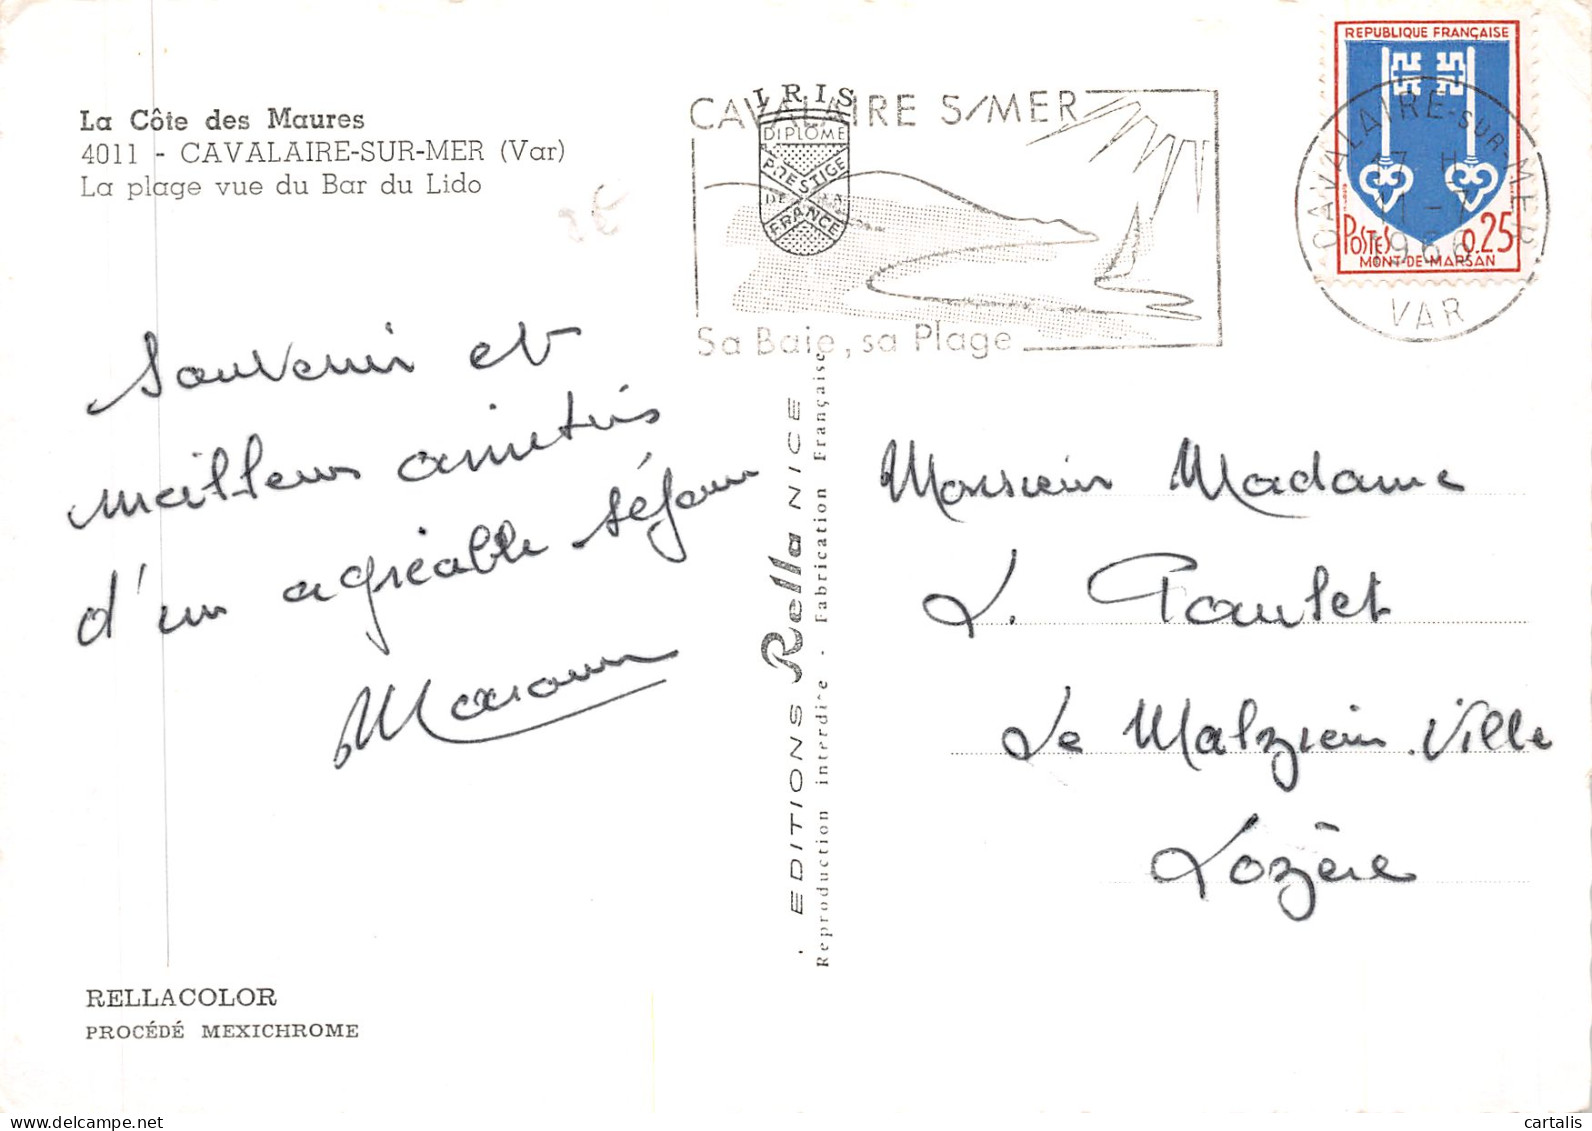 La Côte des Maures
4011 - CAVALAIRE-SUR-MER (Var)
La plage vue du Bar du Lido
CAVALAIRE S/MER
IRIS
DIPLOME
PRESTIGE
DE LA
FRANCE
Sa Baie, sa Plage
REPUBLIQUE FRANÇAISE
POSTES 0.25
MONT-DE-MARSAN
CAVALAIRE-SUR-MER
17 H
11-7
1966
VAR
Souvenir et
meilleurs amitiés
d'un agréable séjour
EDITIONS Rella NICE
Reproduction interdite - Fabrication Française
Monsieur Madame
L. Poulet
Le Malzieu Ville
Lozère
RELLACOLOR
PROCÉDÉ MEXICHROME
cartalis